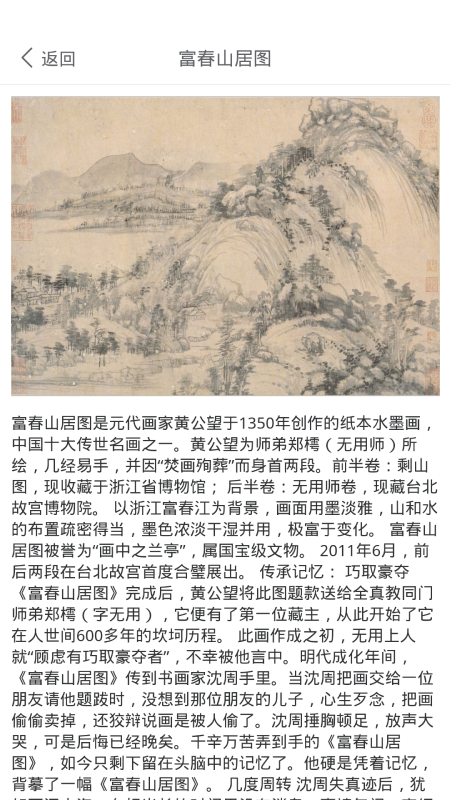 返回
富春山居图
富春山居图是元代画家黄公望于1350年创作的纸本水墨画，
中国十大传世名画之一。黄公望为师弟郑樗（无用师）所
绘，几经易手，并因“焚画殉葬”而身首两段。前半卷：剩山
图，现收藏于浙江省博物馆； 后半卷：无用师卷，现藏台北
故宫博物院。 以浙江富春江为背景，画面用墨淡雅，山和水
的布置疏密得当，墨色浓淡干湿并用，极富于变化。 富春山
居图被誉为“画中之兰亭”，属国宝级文物。 2011年6月，前
后两段在台北故宫首度合璧展出。 传承记忆： 巧取豪夺
《富春山居图》完成后，黄公望将此图题款送给全真教同门
师弟郑樗（字无用），它便有了第一位藏主，从此开始了它
在人世间600多年的坎坷历程。 此画作成之初，无用上人
就“顾虑有巧取豪夺者”，不幸被他言中。明代成化年间，
《富春山居图》传到书画家沈周手里。当沈周把画交给一位
朋友请他题跋时，没想到那位朋友的儿子，心生歹念，把画
偷偷卖掉，还狡辩说画是被人偷了。沈周捶胸顿足，放声大
哭，可是后悔已经晚矣。千辛万苦弄到手的《富春山居
图》，如今只剩下留在头脑中的记忆了。他硬是凭着记忆，
背摹了一幅《富春山居图》。 几度周转 沈周失真迹后，犹